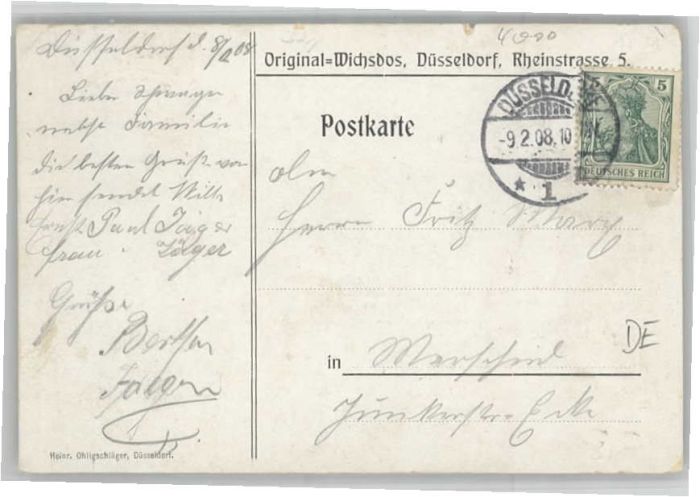 Düsseldorf d. 8/2 08
Lieber Schwager
nebst Familie
Die besten Grüße von
hier sendet Willi
Ernst Paul Jäger
Frau Jäger
Grüße
Bertha
Jaeger
Heinr. Ohligschläger, Düsseldorf.
4000
Original=Wichsdos, Düsseldorf, Rheinstrasse 5.
Postkarte
DÜSSELD
-9.2.08.10
* 1
5
DEUTSCHES REICH
An
Herrn Fritz
in Merscheid
Junkerstr. Ecke
DE